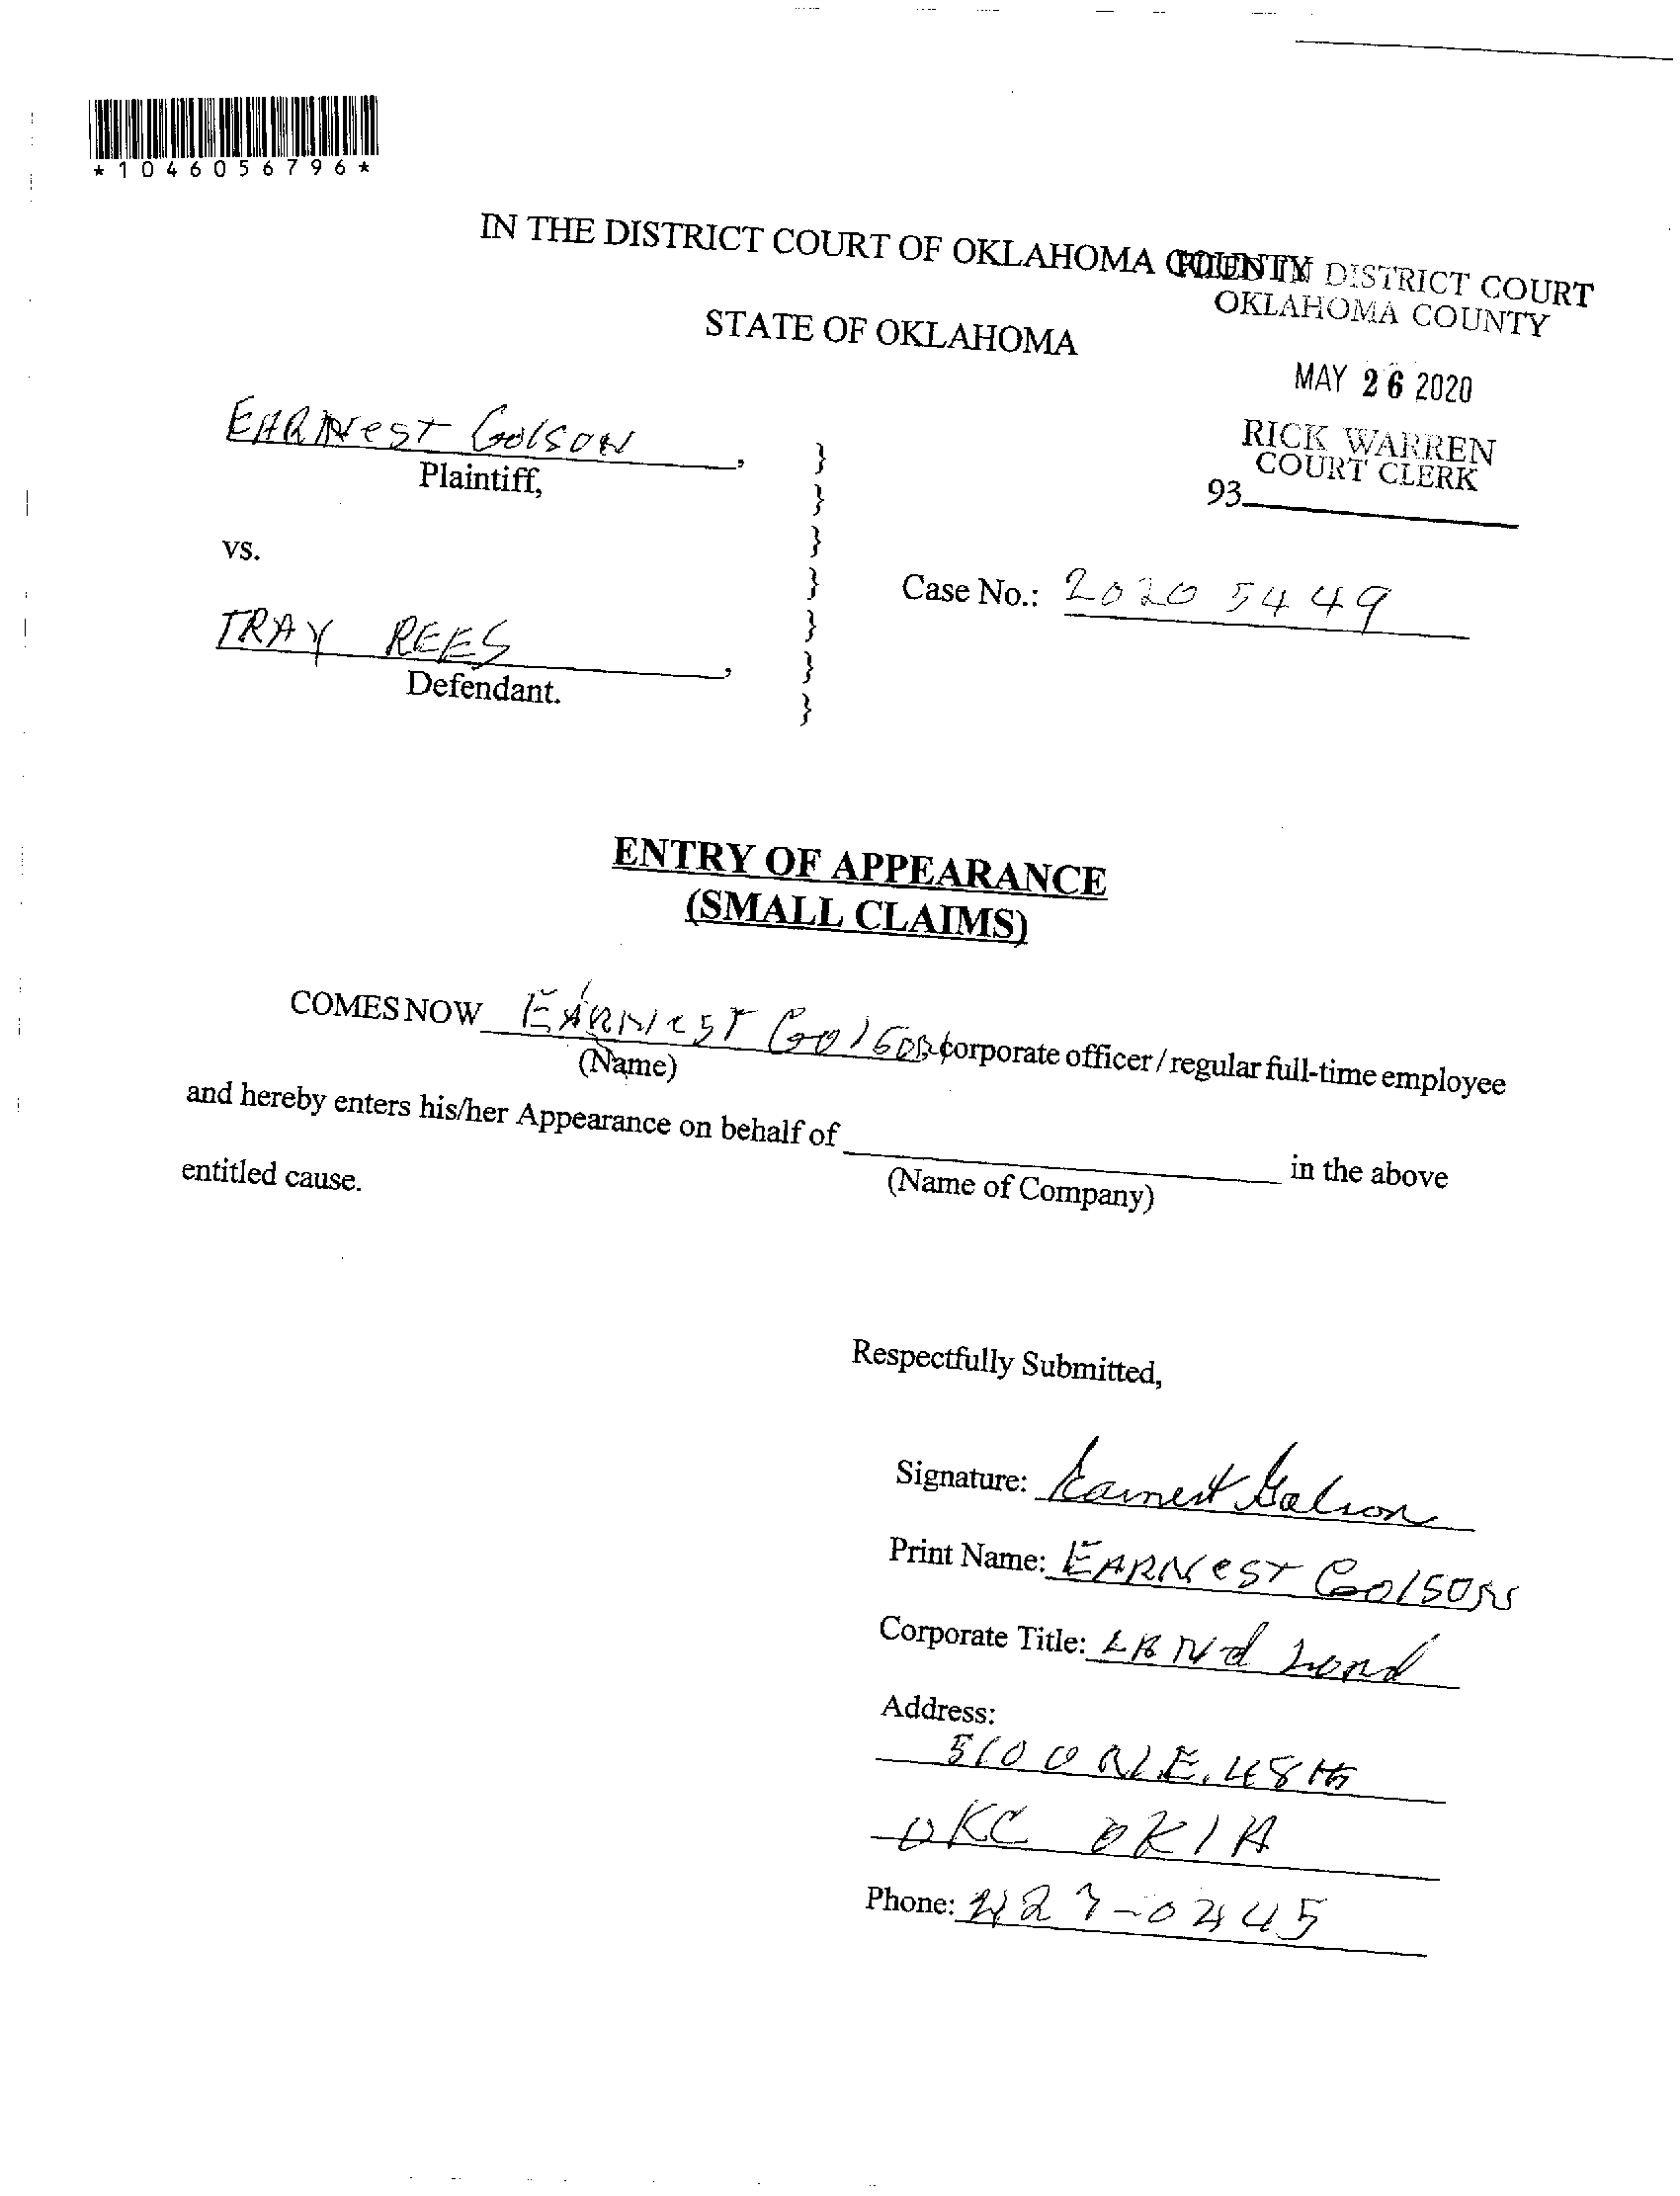 *1046056796*
IN THE DISTRICT COURT OF OKLAHOMA COUNTY
FILED IN DISTRICT COURT
OKLAHOMA COUNTY
STATE OF OKLAHOMA
MAY 26 2020
RICK WARREN
COURT CLERK
93
EARNest Golson,
Plaintiff,
vs.
Case No.: 2020 5449
TRAY REES,
Defendant.
}
}
}
}
}
}
}
ENTRY OF APPEARANCE
(SMALL CLAIMS)
COMES NOW EARNest Golson, corporate officer / regular full-time employee
(Name)
and hereby enters his/her Appearance on behalf of in the above
(Name of Company)
entitled cause.
Respectfully Submitted,
Signature: Earnest Golson
Print Name: EARNest Golson
Corporate Title: LANd Lord
Address:
5100 N.E. 48th
OKC OKlA
Phone: